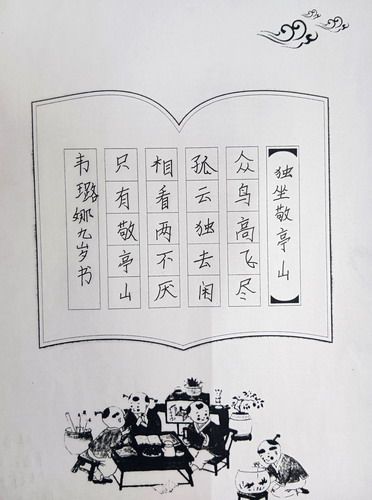 独坐敬亭山
众鸟高飞尽
孤云独去闲
相看两不厌
只有敬亭山
韦璐娜九岁书